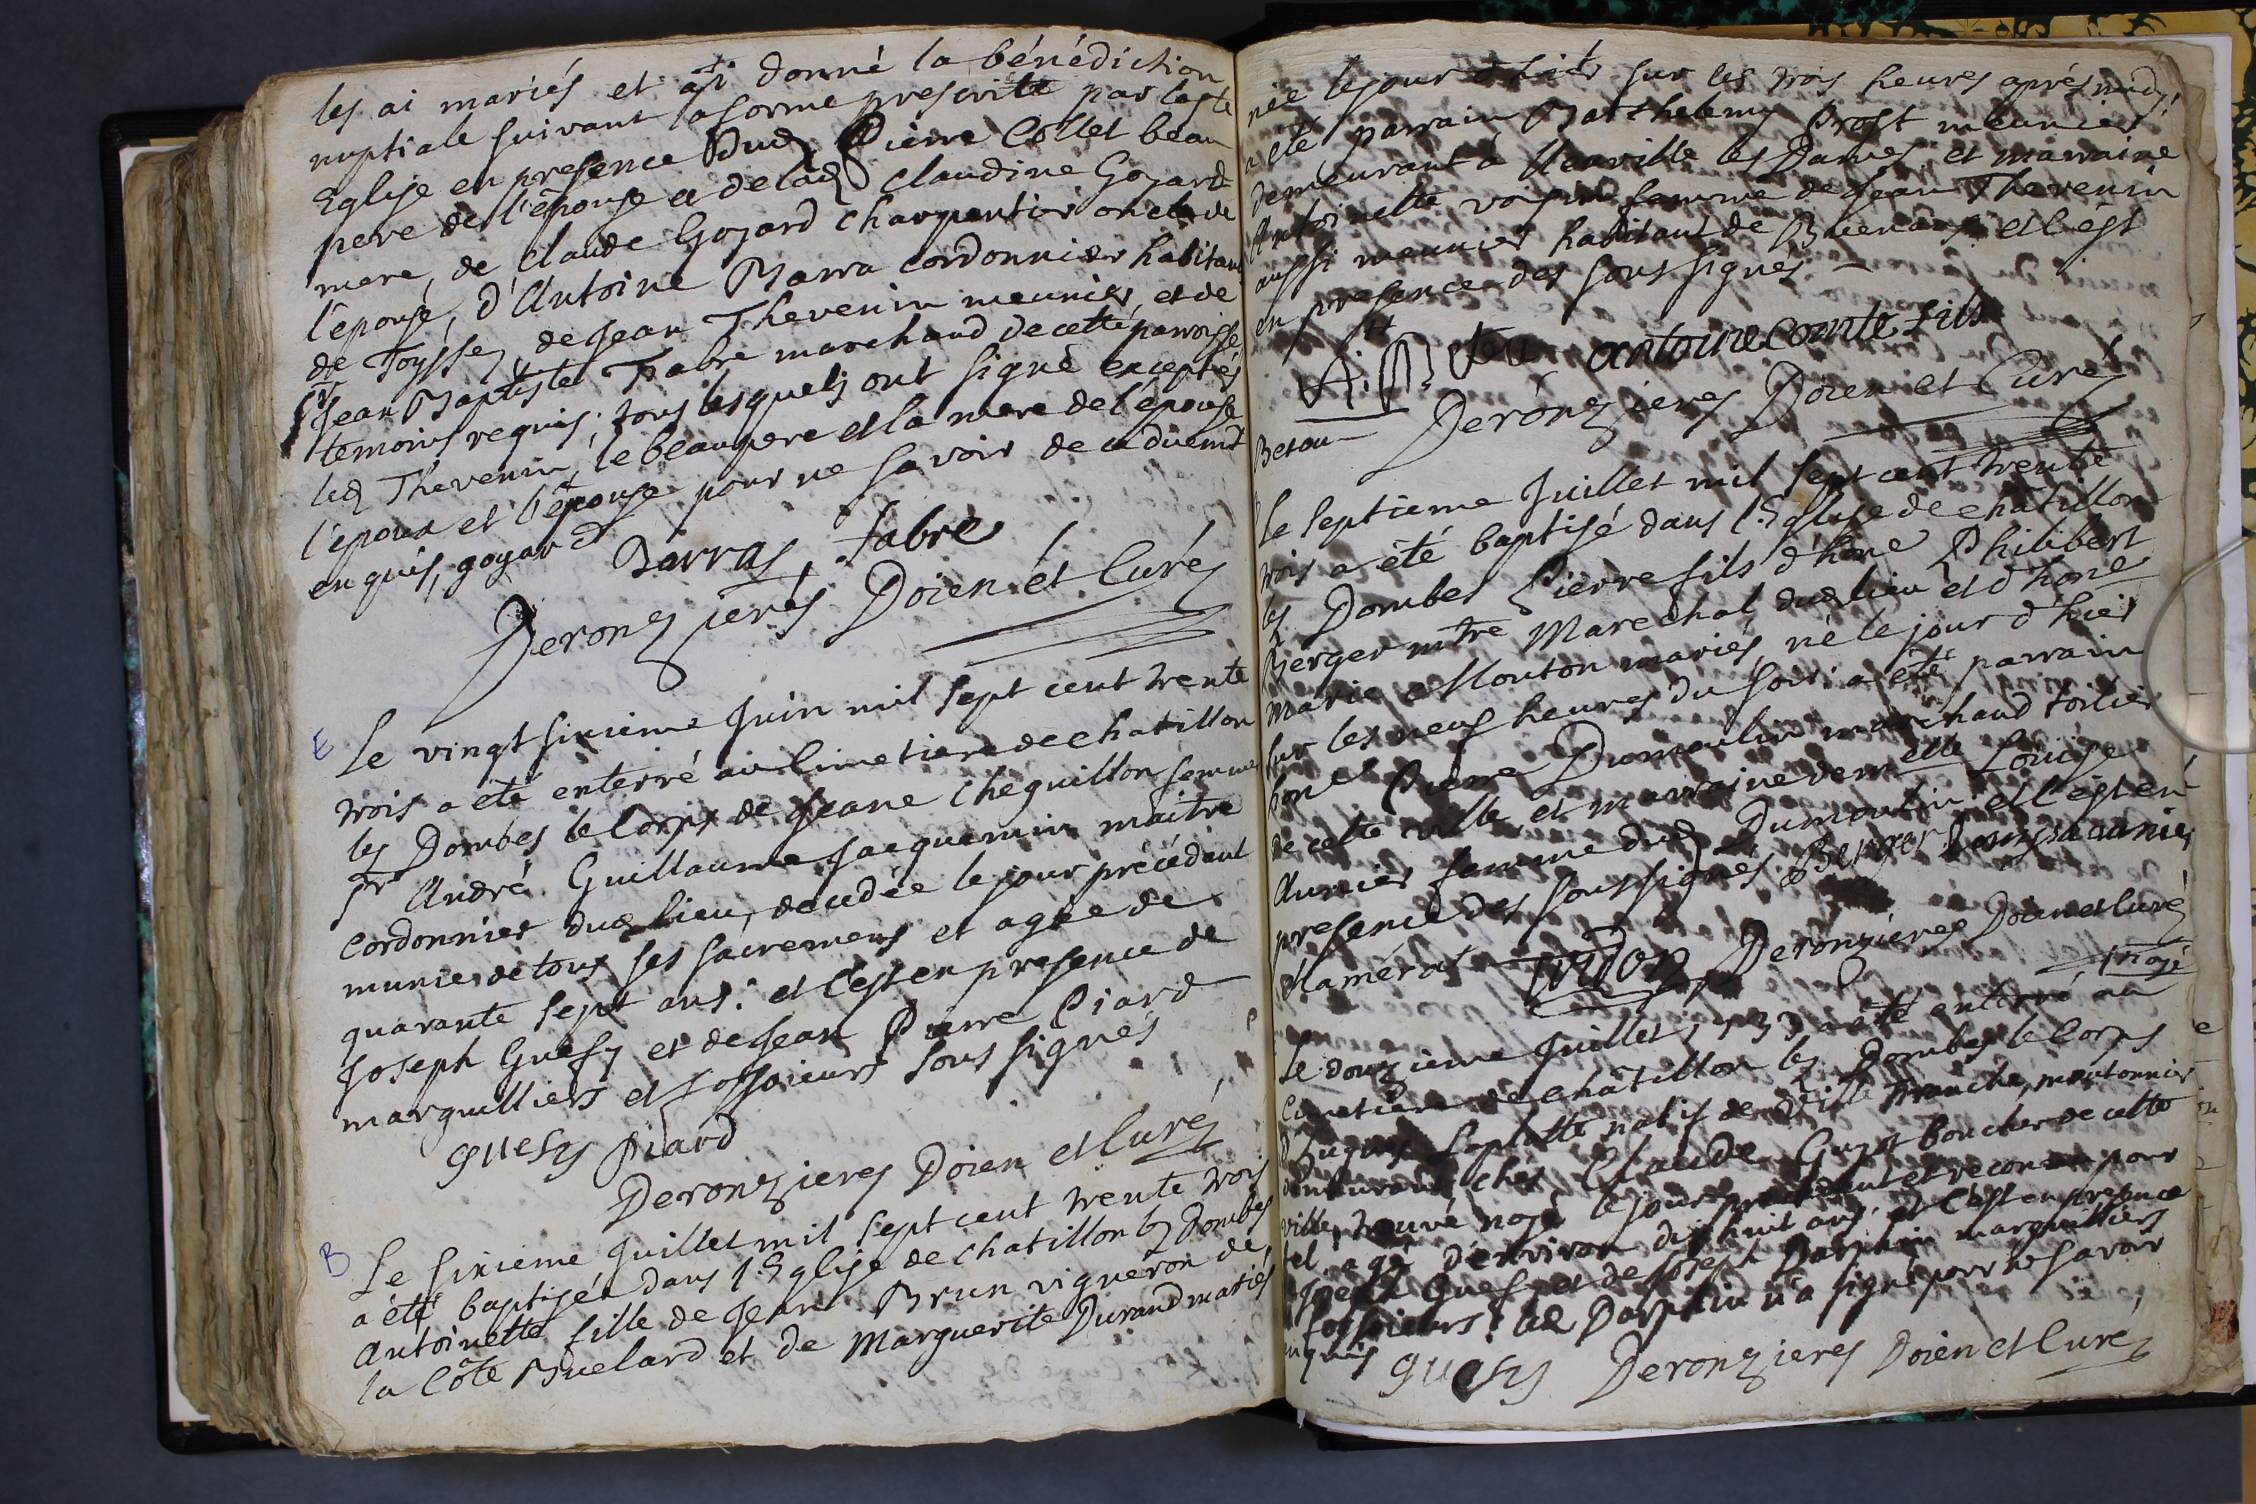 les ai mariés et ai donné la bénédiction
nuptiale suivant la forme prescrite par la ste
Eglise en presence dud Pierre Collet beau
pere de l'épouse et de lad Claudine Goyard
mere, de Claude Goyard charpentier oncle de
l'épouse, d'Antoine Barra cordonnier habitant
de Toyssey, de Jean Thevenin meunier, et de
sr Jean Baptiste Fabre marchand de cette parroisse
temoins requis; tous lesquels ont signé exceptés
led Thevenin, le beaupere et la mere de l'épouse
l'époux et l'épouse pour ne savoir de ce duemt
enquis, goyard Barras, fabre
Deronzieres Doien et Curé
E Le vingt sixieme Juin mil sept cent trente
trois a eté enterré au Cimetiere de chatillon
les Dombes le Corps de Jeane Cheguillon femme
sr André Guillaume Jacquemin maitre
Cordonnier dud lieu, decedée le jour précédant
munie de tous ses sacremens et agée de
quarante sept ans: et c'est en presence de
Joseph Guesy et de Jean Pierre Piard
marguilliers et fossoieurs soussignés
guesy Piard
Deronzieres Doien et Curé
B Le sixieme Juillet mil sept cent trente trois
a été baptisée dans l'Eglise de chatillon les Dombes
Antoinette fille de Jean Brun vigneron de
la Côte Buelard et de Marguerite Durand mariés
née le jour d'hier sur les trois heures après midy
a été parrain Barthelemy Prost meunier
demeurant à Neuville les Dames, et marraine
Antoinette voisin femme de Jean Thevenin
aussi meunier habitant de et c'est
en presence des soussignés
antoine comte fils
Deronzieres Doien et Curé
Le septieme Juillet mil sept cent trente
trois a été baptisé dans l'Eglise de chatillon
les Dombes Pierre fils d'hone Philibert
Berger mtre Marechal dud lieu et d'hone
Marie Mouton mariés, né le jour d'hier
sur les neuf heures du soir: a été parrain
hone Pierre Dumoulin marchand toilier
de cette ville, et marraine demelle Louise
Aunier femme dud Dumoulin, et c'est en
presence des soussignés Berger Louyse aunier
Deronzieres Doien et Curé
noyé
Le douzieme Juillet 1733 a été enterré au
Cimetiere de châtillon les Dombes le Corps
d'hugues Laplatte natif de Ville Franche, moutonnier
demeurant ches Claude Guyot boucher de cette
ville, trouvé noyé le jour precedant et reconnu pour
tel, agé d'environ dix huit ans, et c'est en presence
Joseph Guesy et de Joseph Darphin marguilliers
fossoieurs: led Darphin n'a signé pour ne savoir
enquis
guesy Deronzieres Doien et Curé